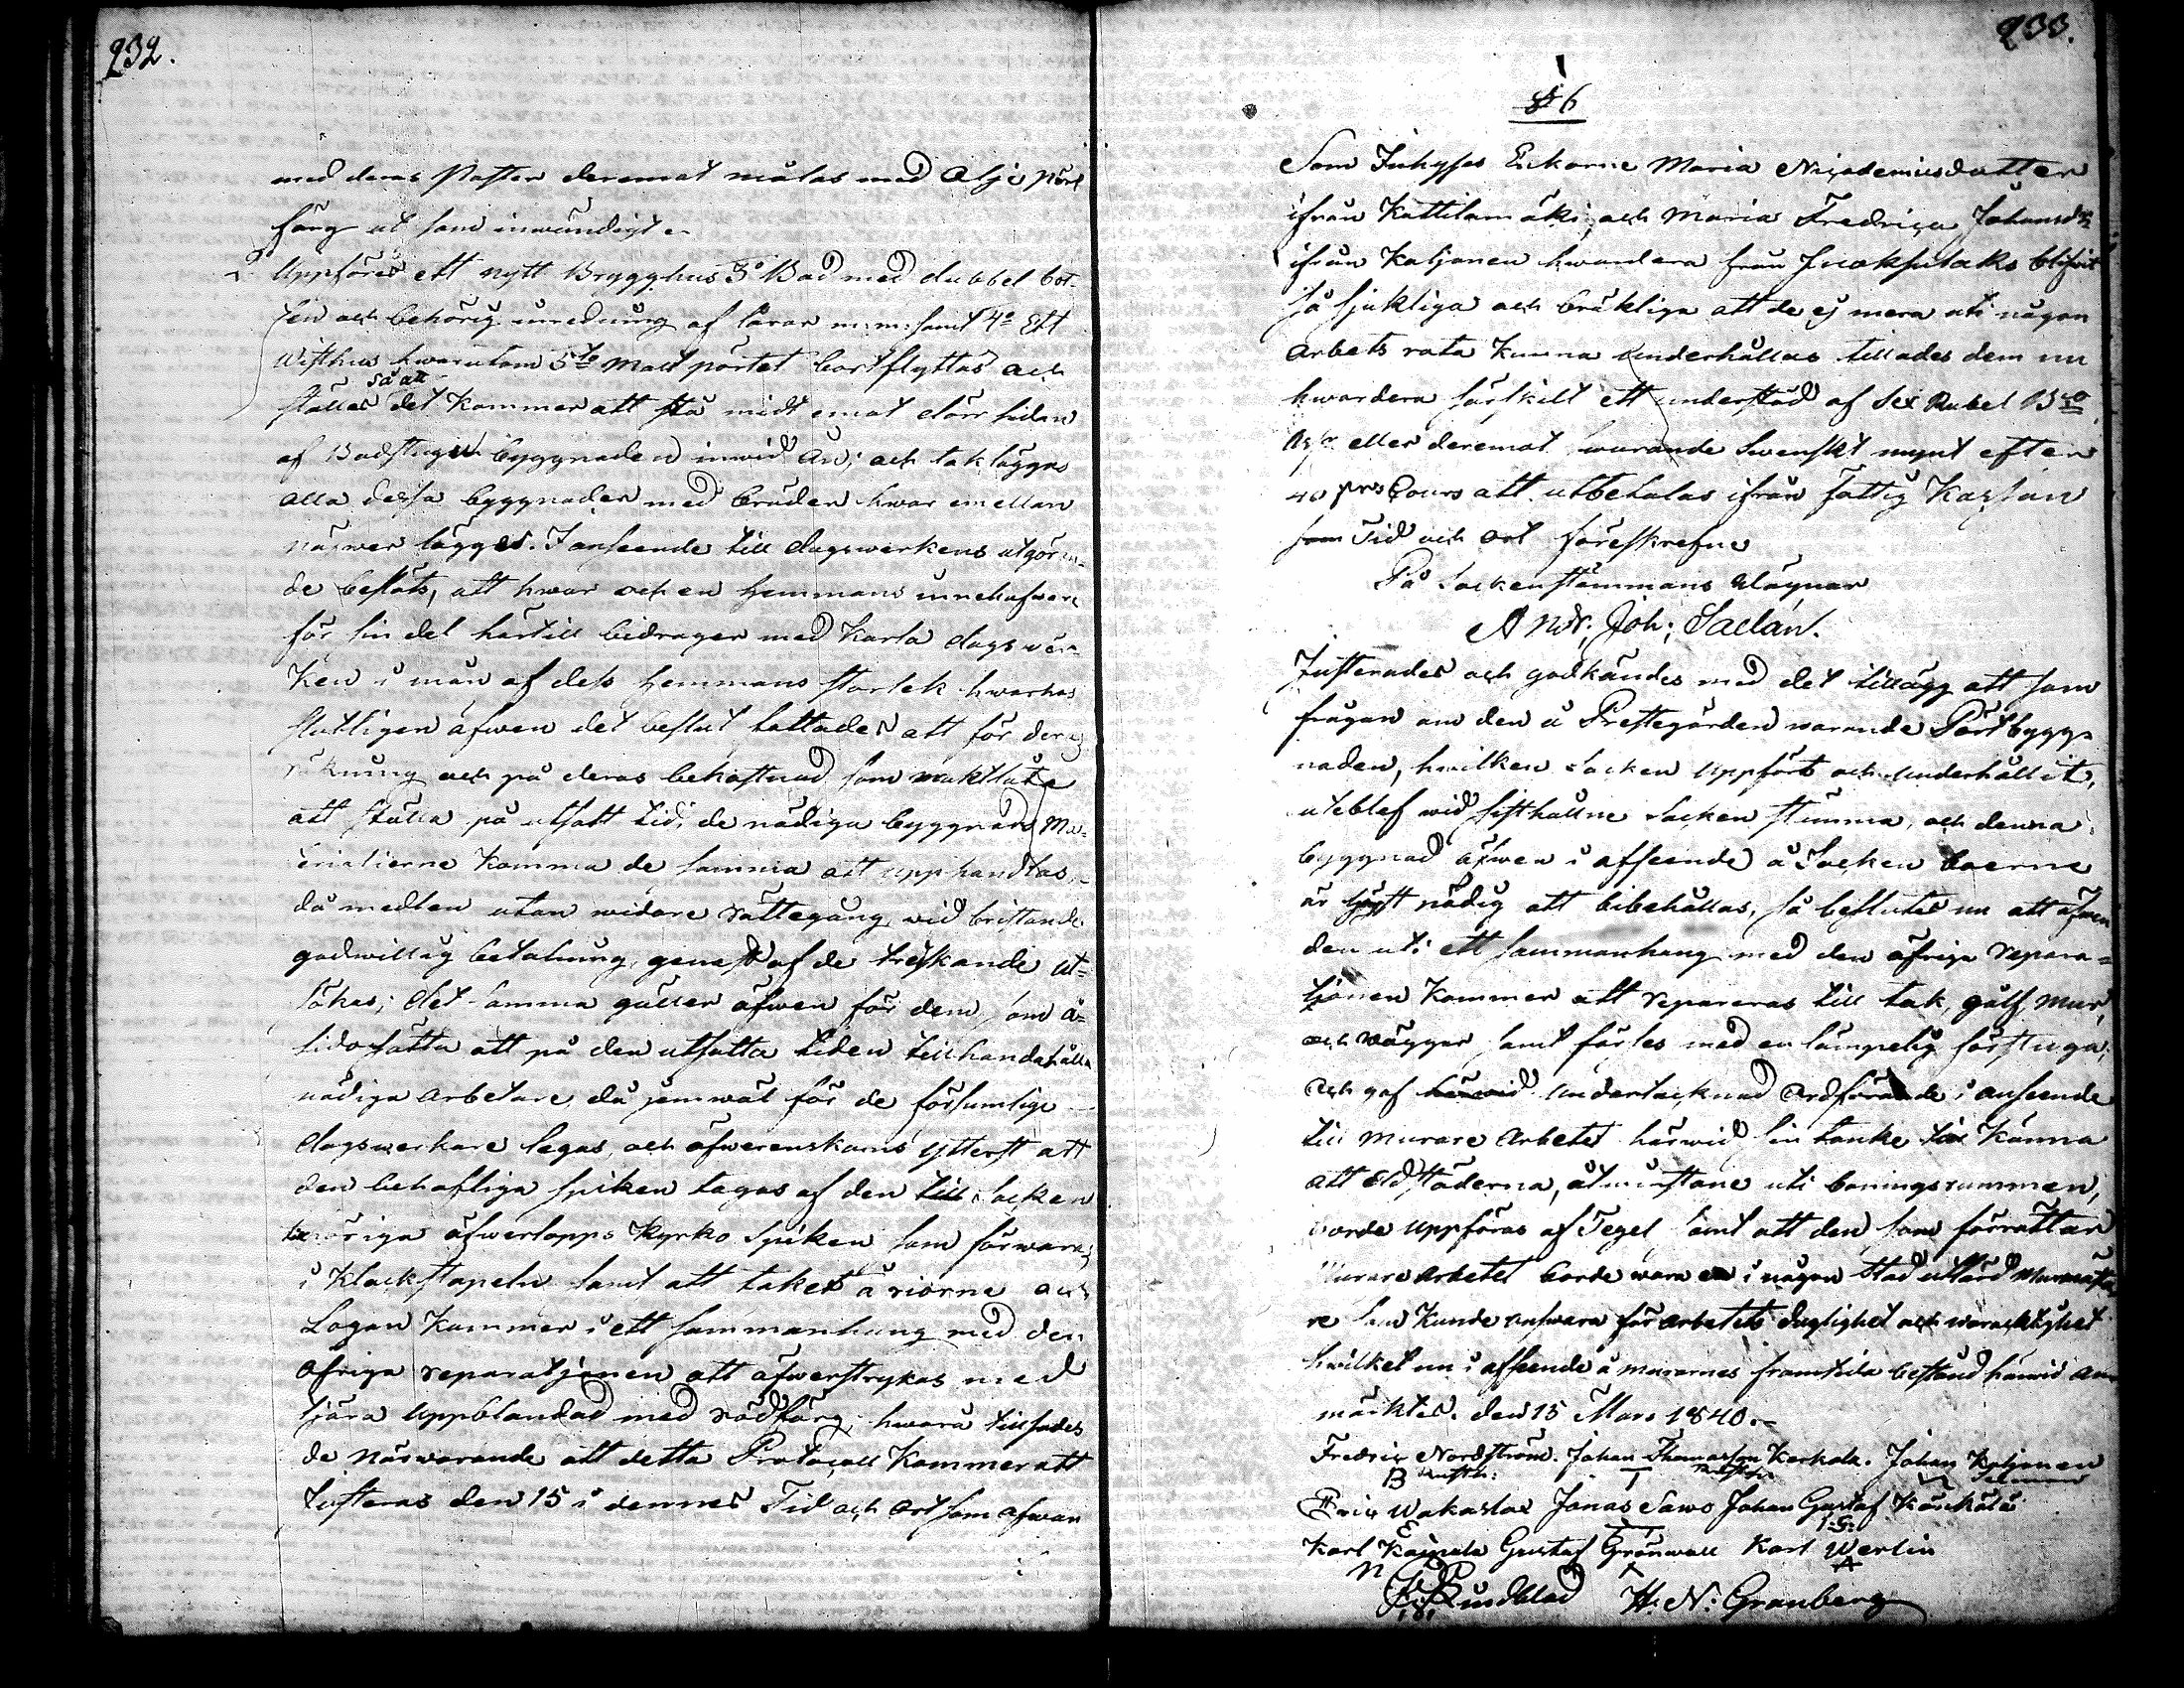 232.
med deras Poster deremot målas med Olje pärl
färg ut som inwändigt.
2o Uppföres ett nytt Brygghus 3o Bod med dubbel bot-
ten och behörig inredning af lårar m:m: samt 4o Ett
Wisthus hwarutom 5te Maltpörtet bortflyttas och
så att
ställes det kommer att stå midt emot dörr sidan
af Badstugu byggnaden inwid Ån; och takläggas
alla dessa byggnader med bräder hwar emellan
näfwer lägges. I anseende till dagswerkens utgöran-
de beslöts, att hwar och en Hemmans innehafware
för sin del härtill bidrager med Karla dagswer-
ken i mån af dess Hemmans storlek hwarhos
slutligen äfwen det beslut fattades att för deras
räkning och på deras bekostnad som underlåta
att ställa på utsatt tid, de nödiga byggnads Ma-
terialierne komma de samma att upphandlas
då medlen utan widare rättegång wid bristande
godwillig betalning, genast af de treskande ut-
sökas; Det samma gäller äfwen för dem som å-
sidosätta att på den utsatta tiden tillhandahålla
nödiga Arbetare, då jemwäl för de försumlige
dagswerkare legas, och öfwerenskoms ytterst att
den behöfliga spiken tagas af den till Socken
höriga öfwerlopps Kyrko Spiken som förwaras
i Klockstapeln samt att taket å riorne och
Logan kommer i ett sammanhang med den
öfriga reparatjonen att öfwerstrykas med
tjära uppblandad med rödfärg; hwarå tillsades
de närwarande att detta Protocoll kommer att
justeras den 15 i dennes Tid och Ort som ofwan
233.
§ 6
Som Inhyses Enkorne Maria Nicodemusdotter
ifrån Kattilamäki och Maria Fredrica Johansdr
ifrån Koljonen hwardera från Juoksulaks blifwit
så sjukliga och bräkliga att de ej mera uti någon
arbets rota kunna underhållas tillades dem nu
hwardera särskilt ett understöd af Sex Rubel Bco
Ass. eller deremot swarande Swenskt mynt efter
40 prs Cours att utbetalas ifrån Fattig Kassan
som Tid och Ort föreskrefne
På Sockenstämmans wägnar
And. Joh: Saelan.
Justerades och godkändes med det tillägg att som
frågan om den å Prestegården warande Pörtbygg-
naden, hwilken Socken uppfört och underhållit,
uteblef wid sisthållne Socken stämma, och denna
byggnad äfwen i afseende å Socken boerne
är högst nödig att bibehållas, så beslutes nu att äfwen
den uti ett sammanhang med den öfriga repara-
tjonen kommer att repareras till tak, golf, mur,
och wäggar samt förses med en lämpelig förstuga;
Och gaf härwid undertecknad Ordförande i anseende
till Murare Arbetet härwid sin tanke till känna
att Eldstäderna, åtminstone uti boningsrummen,
borde uppföras af Tegel samt att den som förrättar
Murare Arbetet borde wara en i någon Stad utlärd Muremästa-
re som kunde answara för arbetets duglighet och waraktighet
hwilket nu i afseende å murarnes framtida bestånd härwid an-
märktes. den 15 Mars 1840.
Fredric Nordström. Johan Thomasson Karkola. Johan Koljonen
B T
Eric Wakaslax Jonas Sawo Johan Gustaf Kärckälä
I:G:
Karl Kaipala Gustaf Grönwall Karl Werlin
n
Sundblad H: N: Granberg